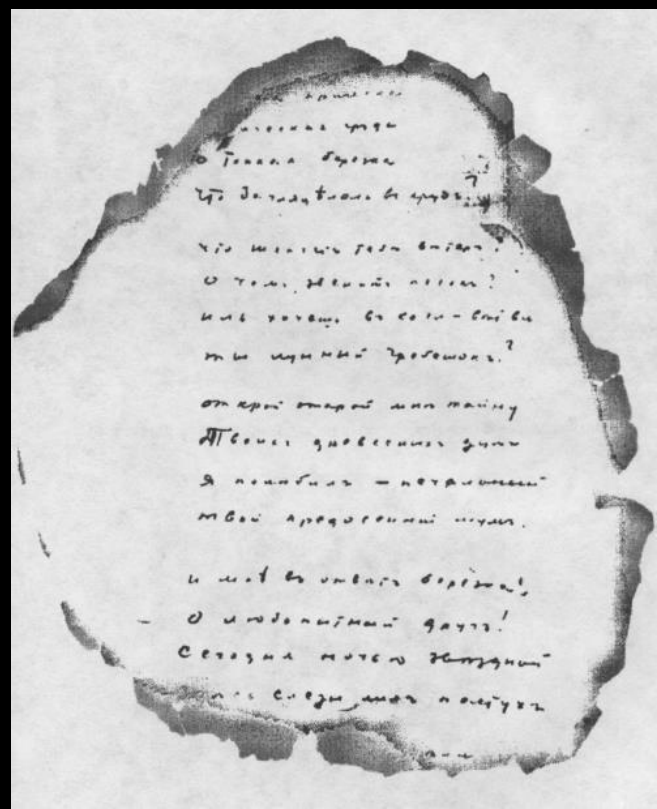 прическа
ическая грудь
О тонкая березка
Что заглядѣлась въ прудъ?
что шепчетъ тебѣ вѣтеръ?
О чемъ звенитъ песокъ?
иль хочешь въ косы-вѣтви
ты лунный гребешокъ?
открой открой мнѣ тайну
Твоихъ древесныхъ думъ
Я полюбилъ – печальный
твой предосенний шумъ.
и мнѣ въ отвѣтъ берёзка:
О любопытный другъ!
Сегодня ночью звездной
слезы лилъ пастухъ